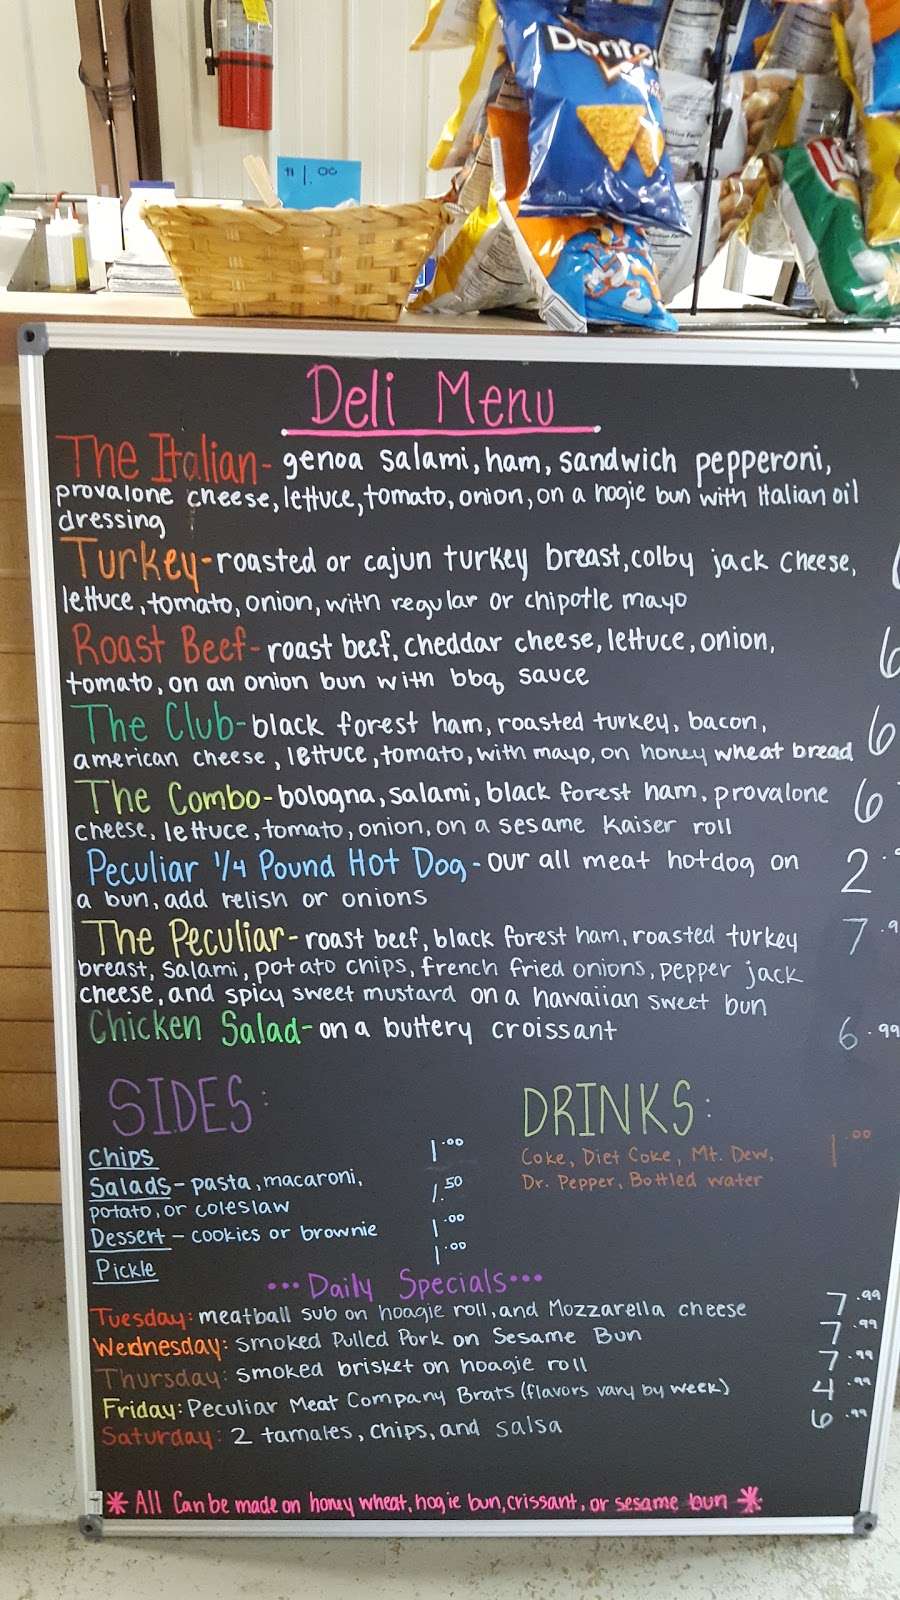 Doritos
1.00
Deli Menu
The Italian- genoa salami, ham, sandwich pepperoni,
provalone cheese, lettuce, tomato, onion, on a hogie bun with Italian oil
dressing
Turkey- roasted or cajun turkey breast, colby jack cheese,
lettuce, tomato, onion, with regular or chipotle mayo
Roast Beef- roast beef, cheddar cheese, lettuce, onion, 6
tomato, on an onion bun with bbq sauce
The Club- black forest ham, roasted turkey, bacon, 6
american cheese, lettuce, tomato, with mayo, on honey wheat bread
The Combo- bologna, salami, black forest ham, provalone 6
cheese, lettuce, tomato, onion, on a sesame Kaiser roll
Peculiar 1/4 Pound Hot Dog- our all meat hotdog on 2.
a bun, add relish or onions
The Peculiar- roast beef, black forest ham, roasted turkey 7.9
breast, salami, potato chips, french fried onions, pepper jack
cheese, and spicy sweet mustard on a hawaiian sweet bun
Chicken Salad- on a buttery croissant 6.99
SIDES:
Chips 1.00
Salads- pasta, macaroni, 1.50
potato, or coleslaw
Dessert- cookies or brownie 1.00
Pickle 1.00
DRINKS:
Coke, Diet Coke, Mt. Dew, 1.00
Dr. Pepper, Bottled water
•••Daily Specials•••
Tuesday: meatball sub on hoagie roll, and Mozzarella cheese 7.99
Wednesday: smoked Pulled Pork on Sesame Bun 7.99
Thursday: smoked brisket on hoagie roll 7.99
Friday: Peculiar Meat Company Brats (flavors vary by week) 4.99
Saturday: 2 tamales, chips, and salsa 6.99
* All Can be made on honey wheat, hogie bun, crissant, or sesame bun *